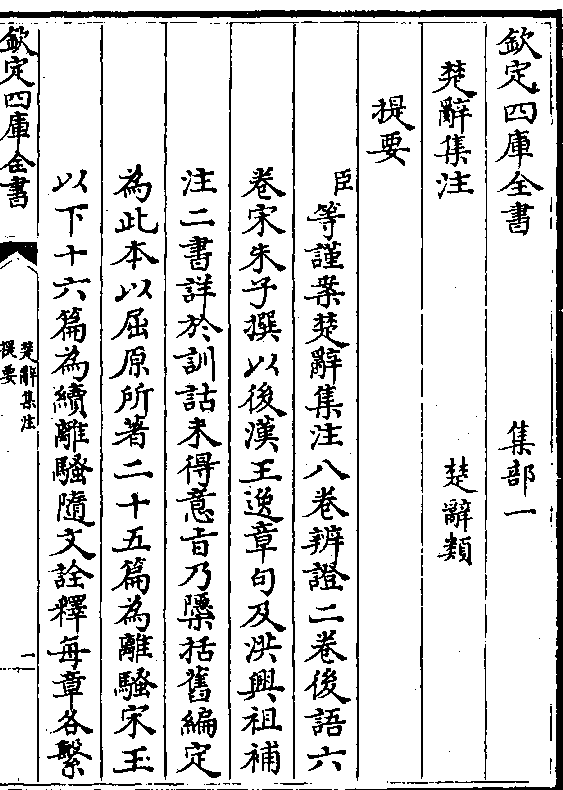 欽定四庫全書 集部一
楚辭集注 楚辭類
提要
臣等謹案楚辭集注八卷辨證二卷後語六
卷宋朱子撰以後漢王逸章句及洪興祖補
注二書詳於訓詁未得意旨乃檃括舊編定
為此本以屈原所著二十五篇為離騷宋玉
以下十六篇為續離騷隨文詮釋每章各繫
欽定四庫全書
楚辭集注
提要
一